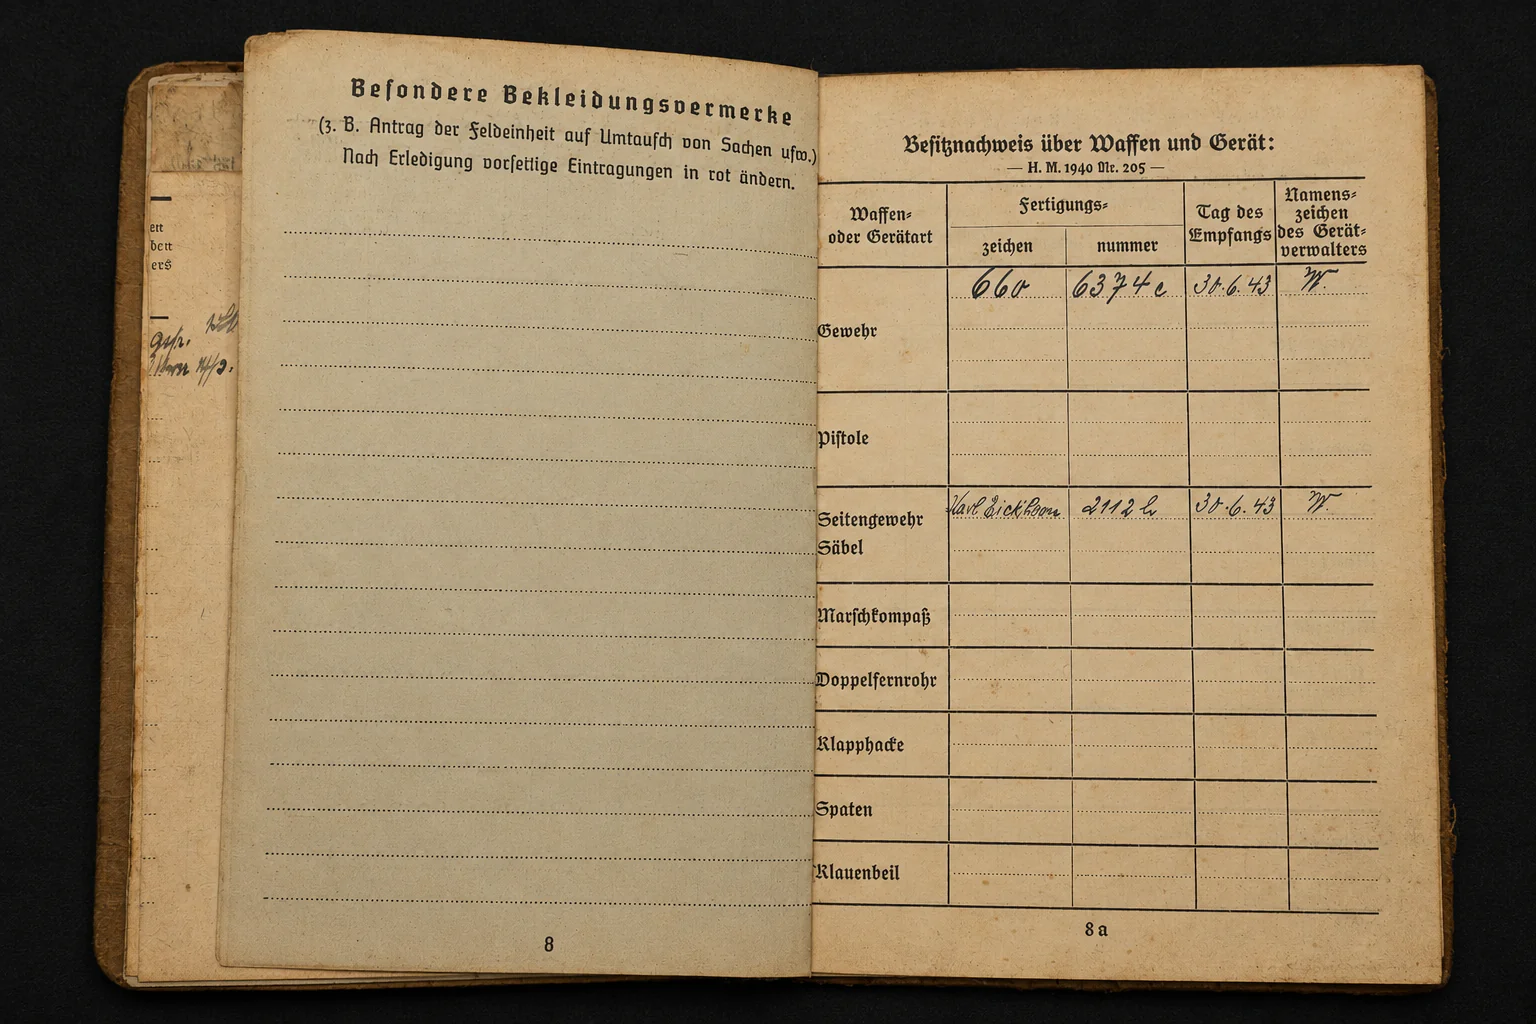 en
den
ers
gefr.
Besondere Bekleidungsvermerke
(z. B. Antrag der Feldeinheit auf Umtausch von Sachen usw.)
Nach Erledigung vorseitige Eintragungen in rot ändern.
8
Besitznachweis über Waffen und Gerät:
— H. M. 1940 Nr. 205 —
Waffen- oder Gerätart
Fertigungs-
zeichen nummer
Tag des Empfangs
Namens- zeichen des Gerät- verwalters
Gewehr 660 6374 c 30.6.43 W.
Pistole
Seitengewehr Karl Eickhorn 2112 h 30.6.43 W.
Säbel
Marschkompaß
Doppelfernrohr
Klapphacke
Spaten
Klauenbeil
8 a